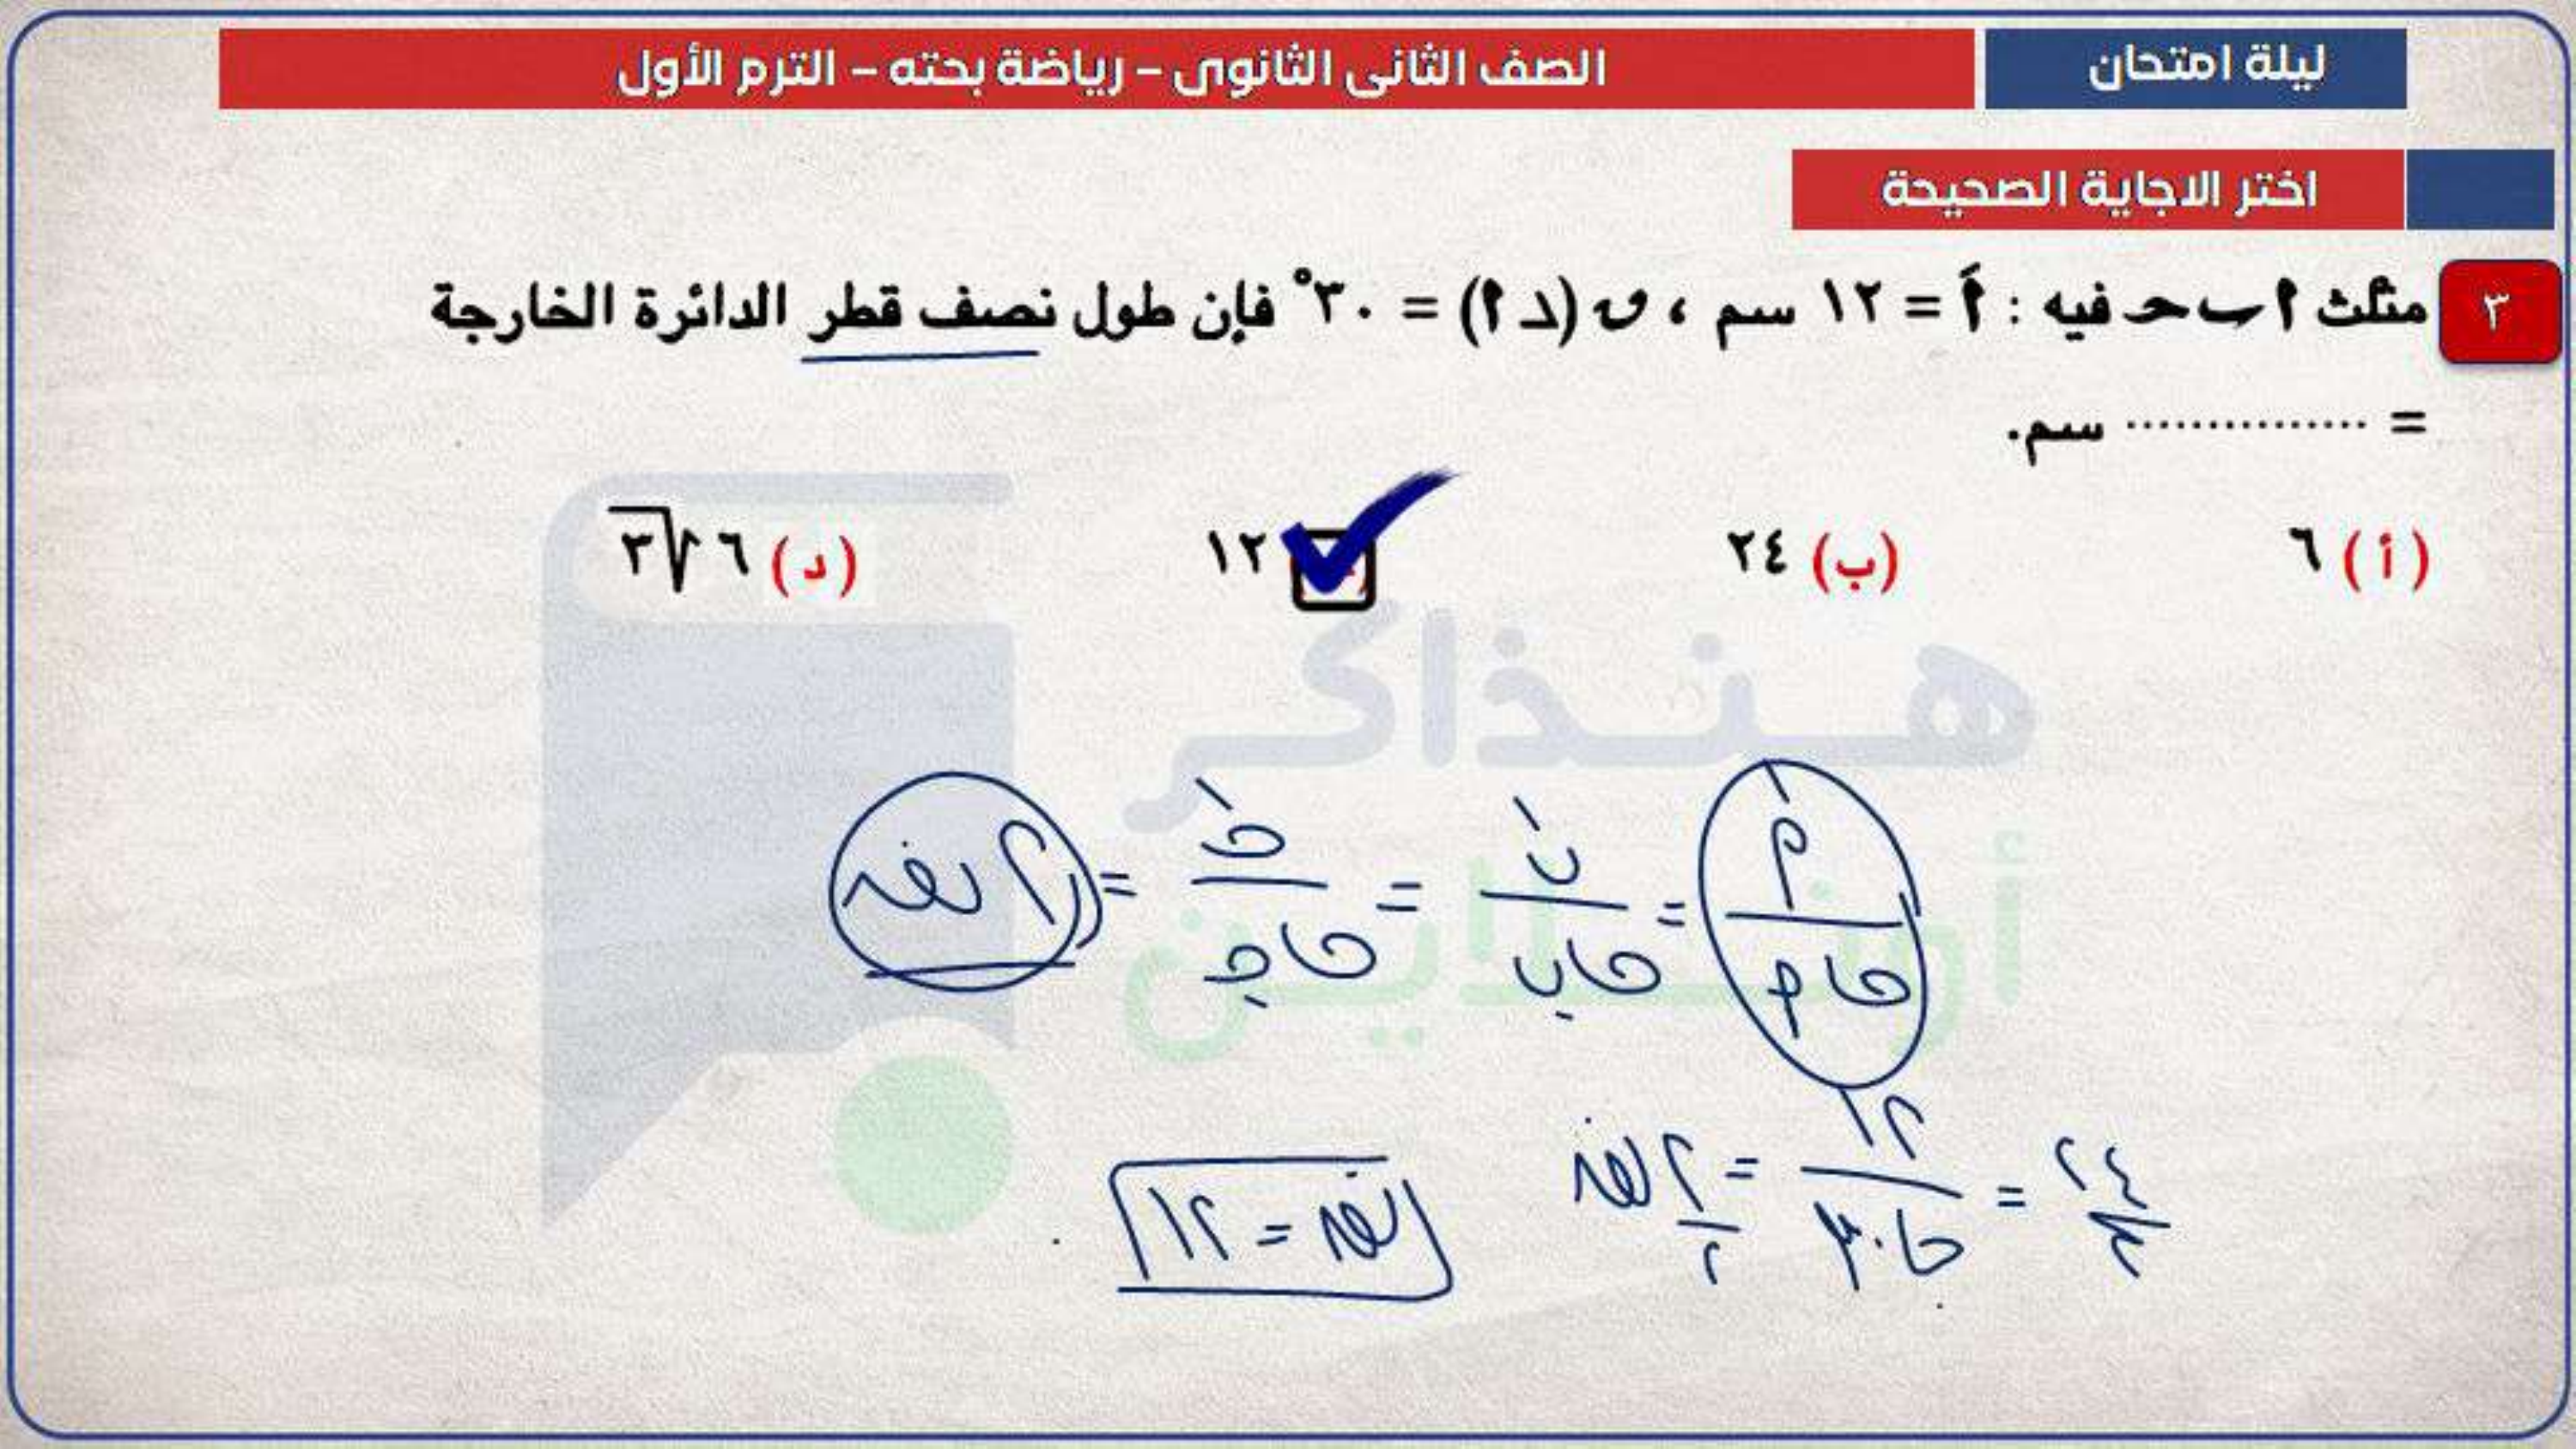 ليلة امتحان
الصف الثانى الثانوى – رياضة بحته – الترم الأول
اختر الاجاية الصحيحة
٣ مثلث ا ب ح فيه : اَ = ١٢ سم ، ن (د ا) = ٣٠° فإن طول نصف قطر الدائرة الخارجة
= ............... سم.
(أ) ٦ (ب) ٢٤ ١٢ (د) ٦ √٣
هنذاكر
أونلاين
اَ/حا ا = بَ/حا ب = جَ/حا جـ = ٢ نق
٢٤ = ١٢/حا ٣٠ = ٢ نق
نق = ١٢